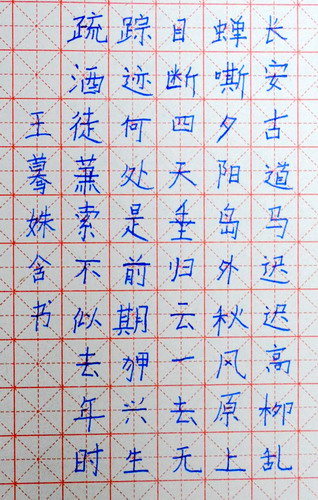 长安古道马迟迟高柳乱
蝉嘶夕阳岛外秋风原上
目断四天垂归云一去无
踪迹何处是前期狎兴生
疏酒徒萧索不似去年时
王姝含书